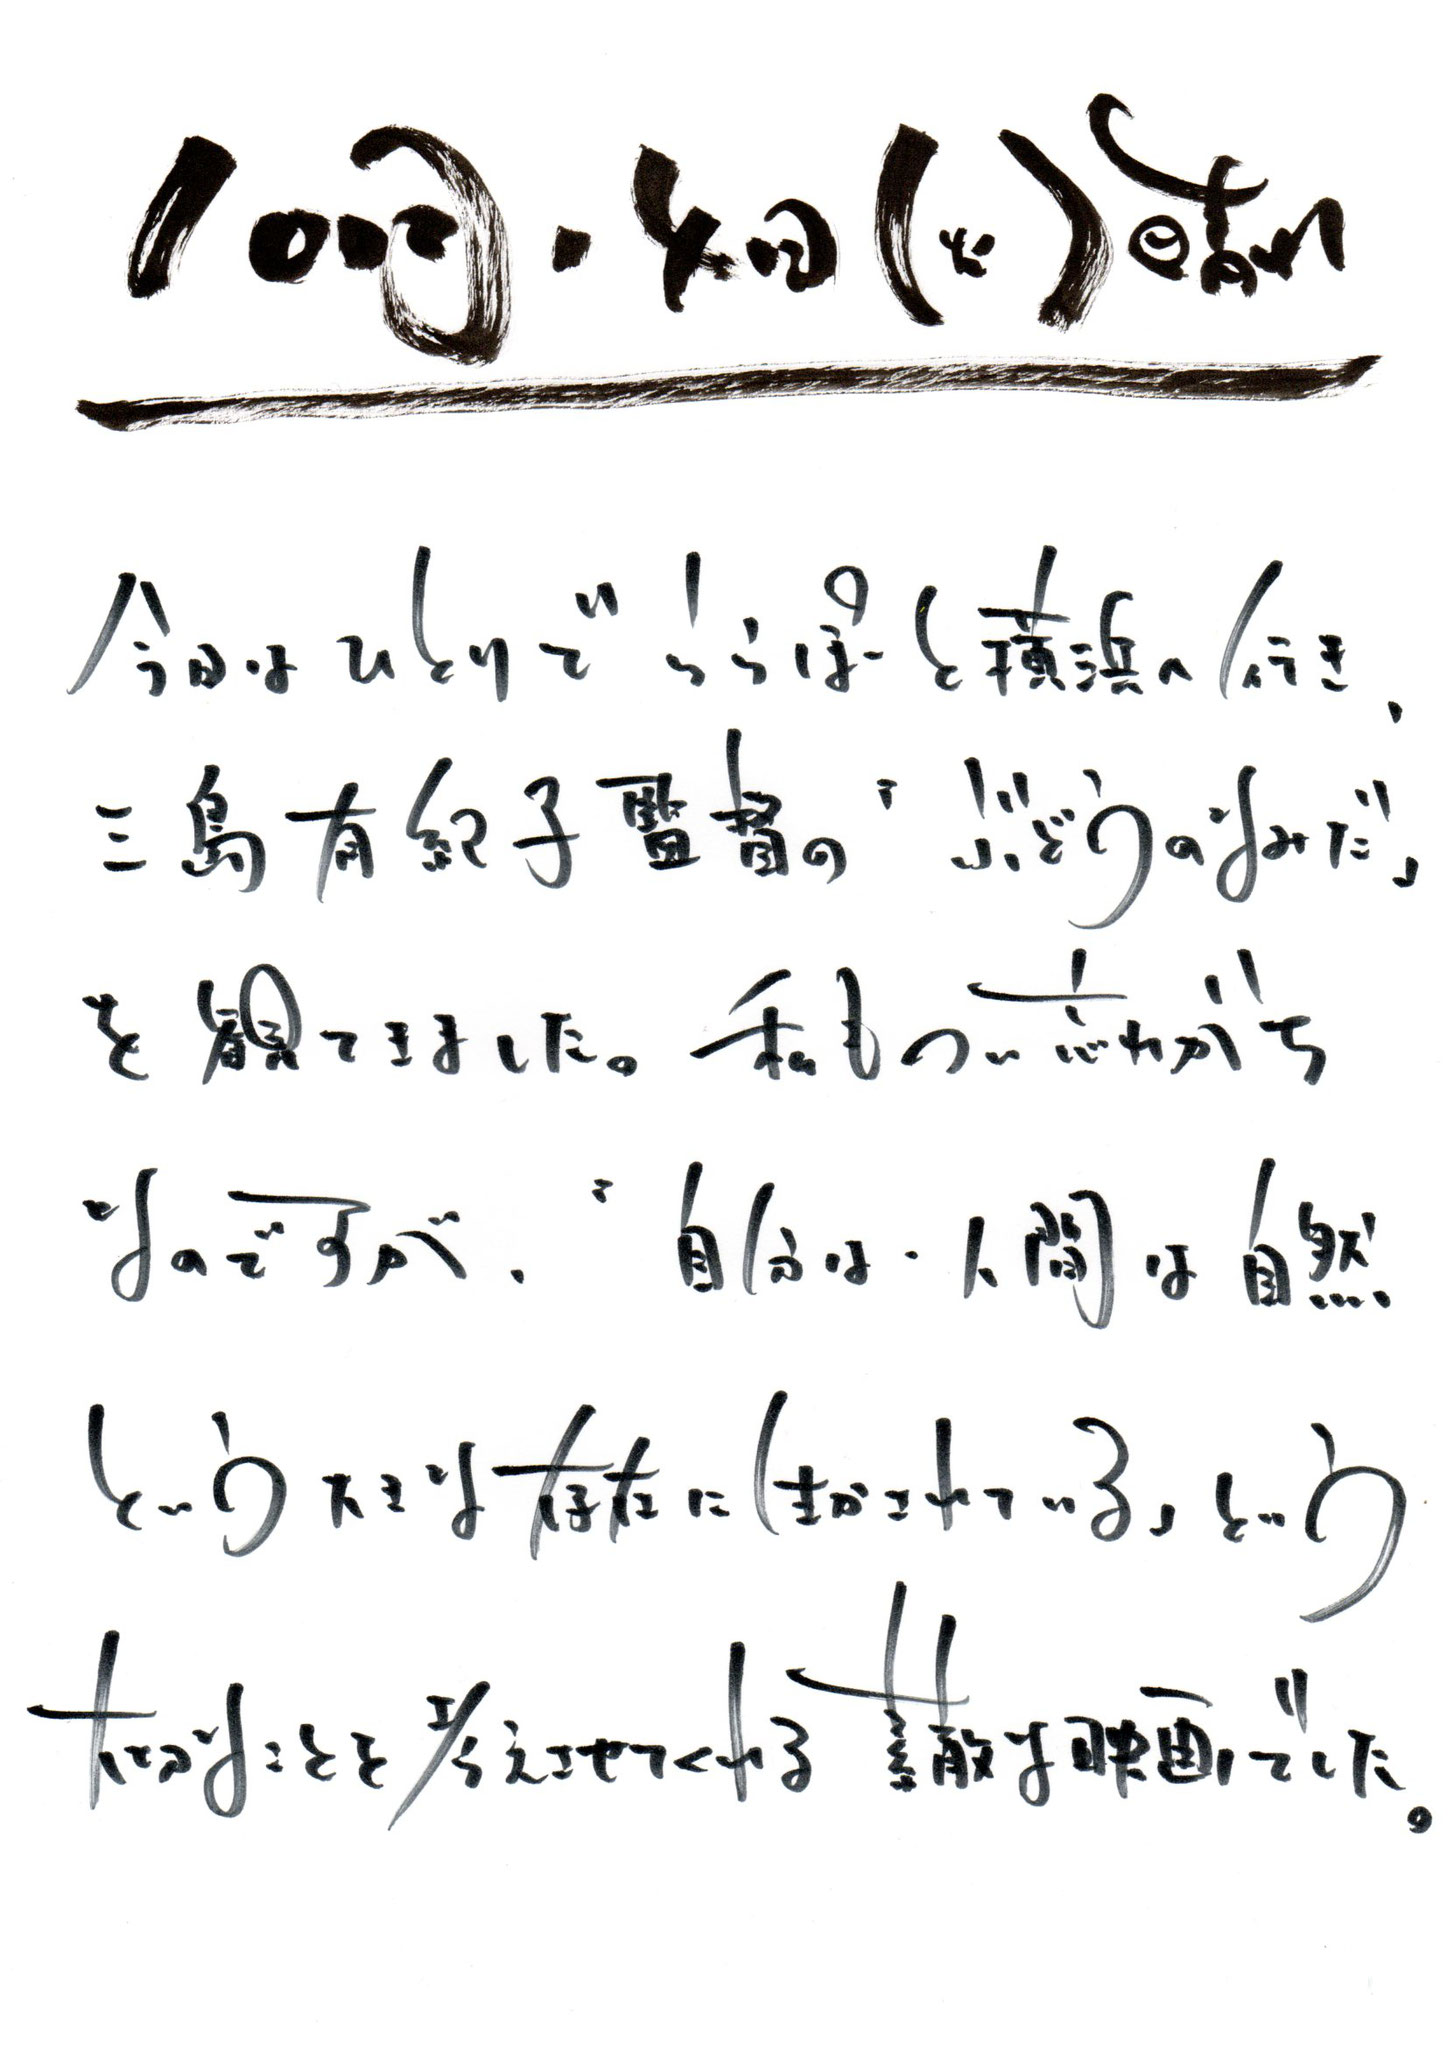 10月・14日(火)晴れ
今日はひとりでららぽーと横浜へ行き、
三島有紀子監督の「ぶどうのなみだ」
を観てきました。私もつい忘れがち
なのですが、「自分は・人間は自然
という大きな存在に生かされている」という
大切なことを考えさせてくれる素敵な映画でした。